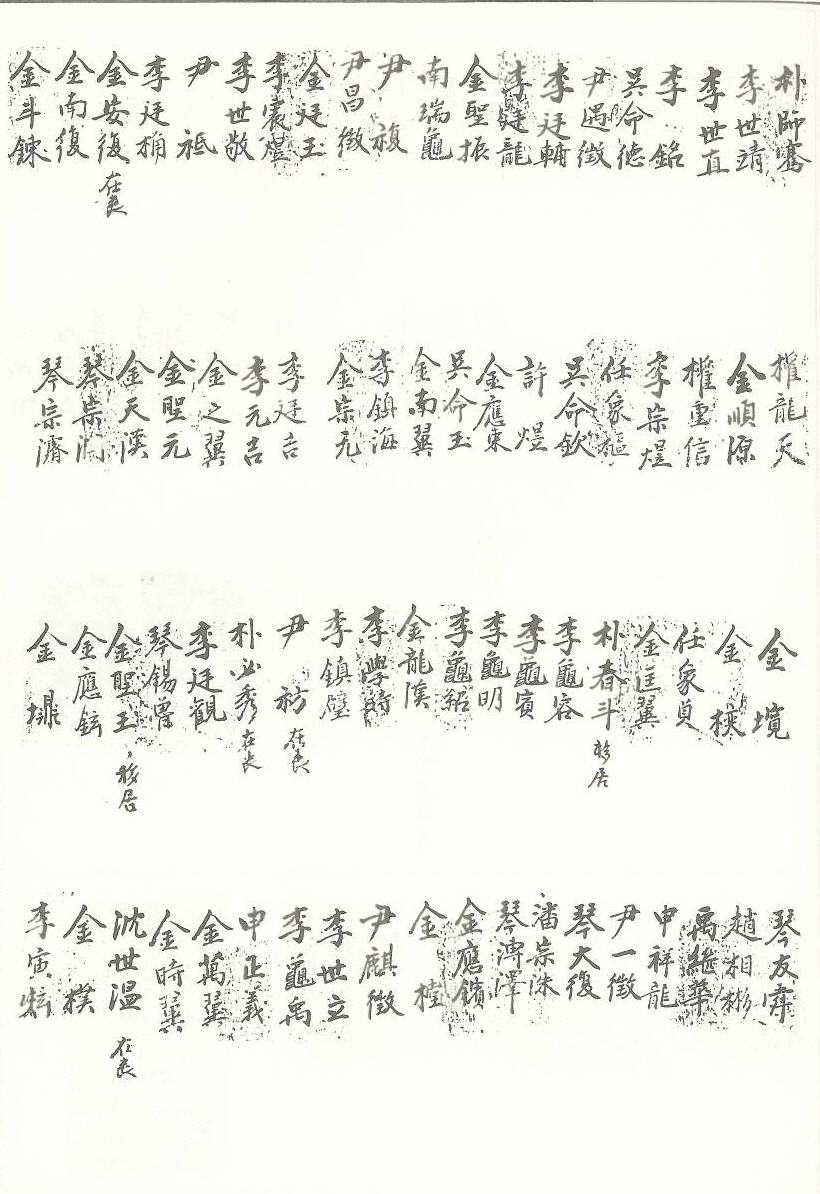 朴師騫
李世靖
李世直
李銘
吳命德
尹遇徵
李廷輔
李廷龍
金聖振
南瑞龜
尹𥛅
尹昌徵
金廷玉
李震熤
李世敬
尹祗
李廷楠
金安復 在喪
金南復
金斗鍊
權龍天
金順源
權重信
李宗煜
任象樞
吳命欽
許煜
金應東
吳命玉
金南翼
李鎮海
金宗元
李廷吉
李元吉
金之翼
金聖元
金天漢
琴崇
琴宗濟
金境
金
任象貞
金匡翼
朴春斗 移居
李龜容
李龜賓
李龜明
李龜
金龍漢
李學時
李鎮璧
尹祊 在喪
朴必秀 在喪
李廷觀
琴錫
金聖玉 移居
金應鉉
金
琴友
趙相彬
禹繼華
申祥龍
尹一徵
琴大復
潘崇洙
琴溥澤
金應鑌
金
尹麒徵
李世立
李龜禹
申正義
金萬翼
金時翼
沈世溫 在喪
金樸
李寅